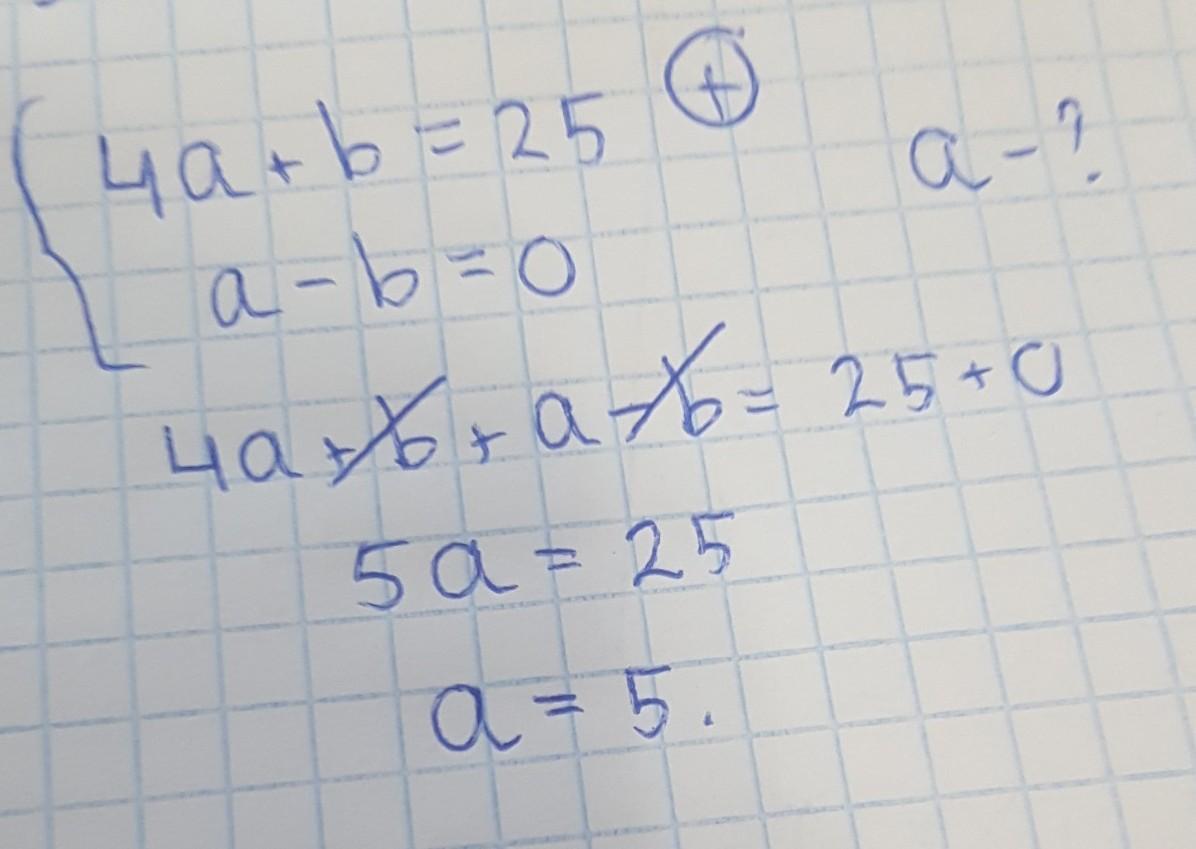 4a + b = 25 ⊕ a - ?
a - b = 0
4a + b + a - b = 25 + 0
5a = 25
a = 5.